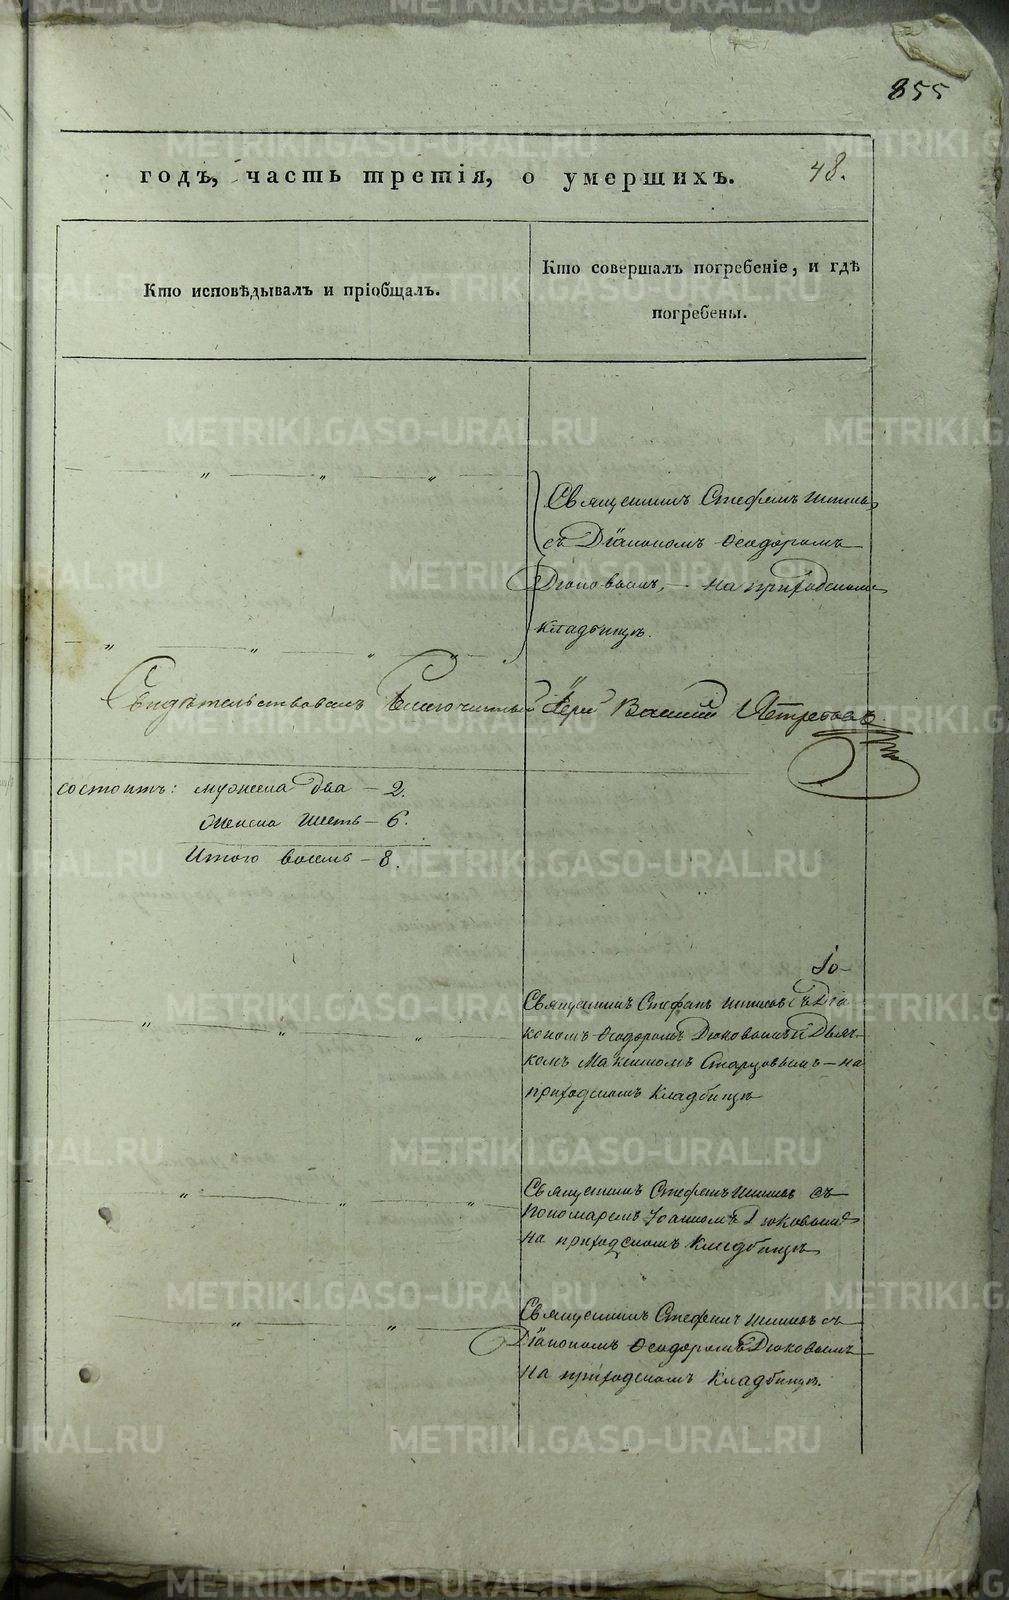 855
годъ, часть третія, о умершихъ. 48.
Кто исповѣдывалъ и пріобщалъ.
Кто совершалъ погребеніе, и гдѣ
погребены.
Священникъ Стефанъ
съ Діакономъ Ѳеодоромъ
Дюковымъ, — на приходскомъ
кладбищѣ.
Свидѣтельствовалъ Благочинный Іерей Василій
состоитъ: мужеска два — 2.
Женска шесть — 6.
Итого восемь — 8.
Священникъ Стефанъ съ Діа
кономъ Ѳеодоромъ Дюковымъ и Дьяч-
комъ Максимомъ Старцовымъ — на
приходскомъ Кладбищѣ
Священникъ Стефанъ съ
Пономаремъ Іоанномъ Дюковымъ
на приходскомъ Кладбищѣ
Священникъ Стефанъ съ
Діакономъ Ѳеодоромъ Дюковымъ
на приходскомъ Кладбищѣ.
METRIKI.GASO-URAL.RU